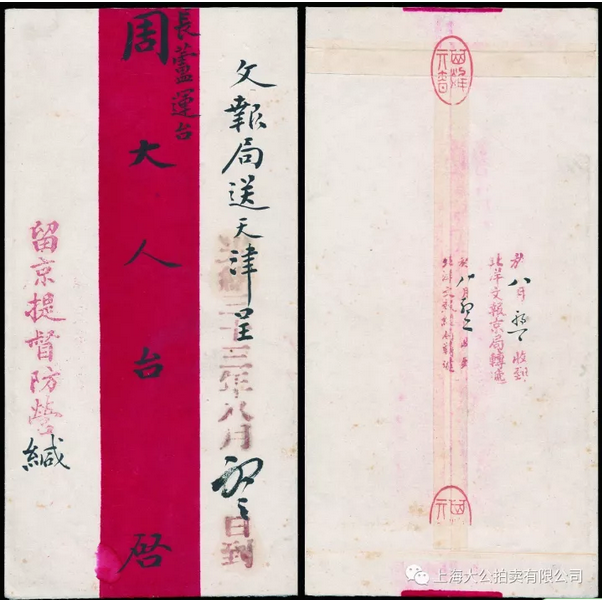 文報局送天津呈
光緒三十三年八月初三日到
長蘆運台
周大人台啓
留京提督防營緘
八月初一收到
北洋文報京局轉遞
上海大么拍卖有限公司